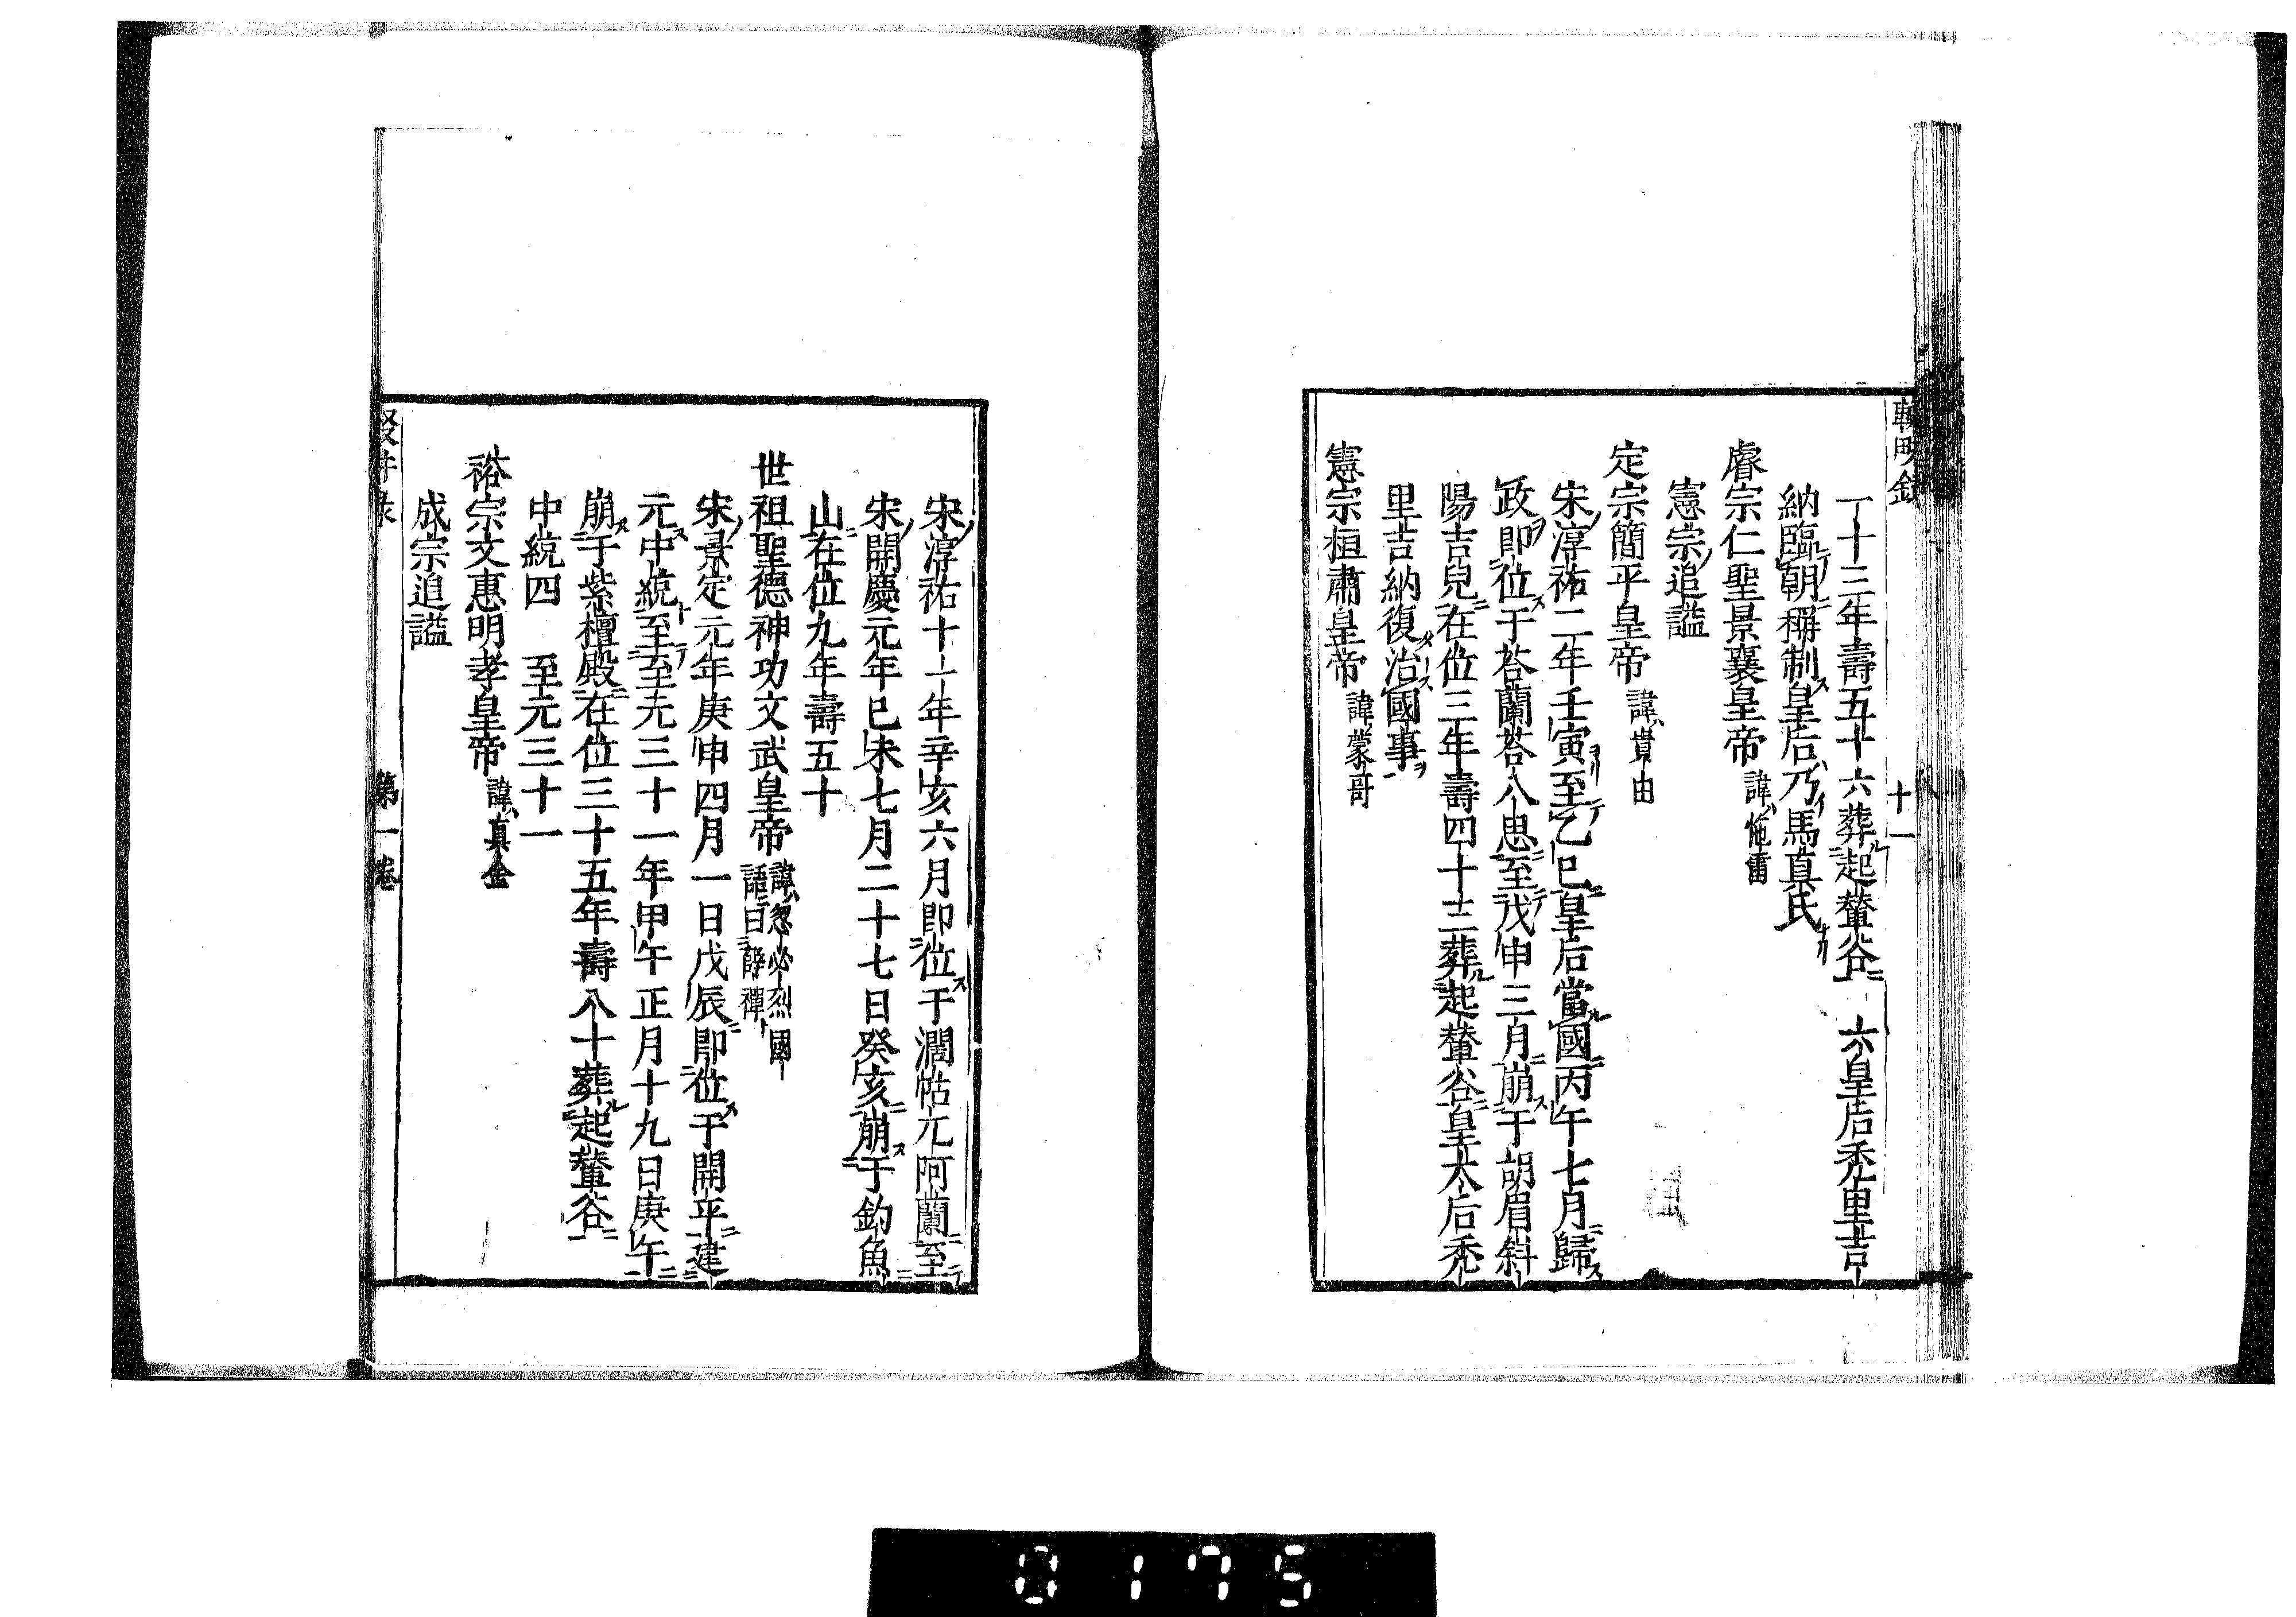 輟畊録
十一
一十三年壽五十六葬起輦谷 六皇后禿里吉
納臨朝稱制皇后乃馬真氏
睿宗仁聖景襄皇帝 諱拖雷
憲宗追謚
定宗簡平皇帝 諱貴由
宋淳祐二年壬寅至乙巳皇后當國丙午七月歸
政即位于荅蘭荅八思至戊申三月崩于胡眉斜
陽吉兒在位三年壽四十三葬起輦谷皇太后禿
里吉納復治國事
憲宗桓肅皇帝 諱蒙哥
宋淳祐十一年辛亥六月即位于濶帖兀阿蘭至
宋開慶元年己未七月二十七日癸亥崩于釣魚
山在位九年壽五十
世祖聖德神功文武皇帝 諱忽必烈國
語曰薛禪
宋景定元年庚申四月一日戊辰即位于開平建
元中統至至元三十一年甲午正月十九日庚午
崩于紫檀殿在位三十五年壽八十葬起輦谷
中統四 至元三十一
裕宗文惠明孝皇帝 諱真金
成宗追謚
第一卷
0175